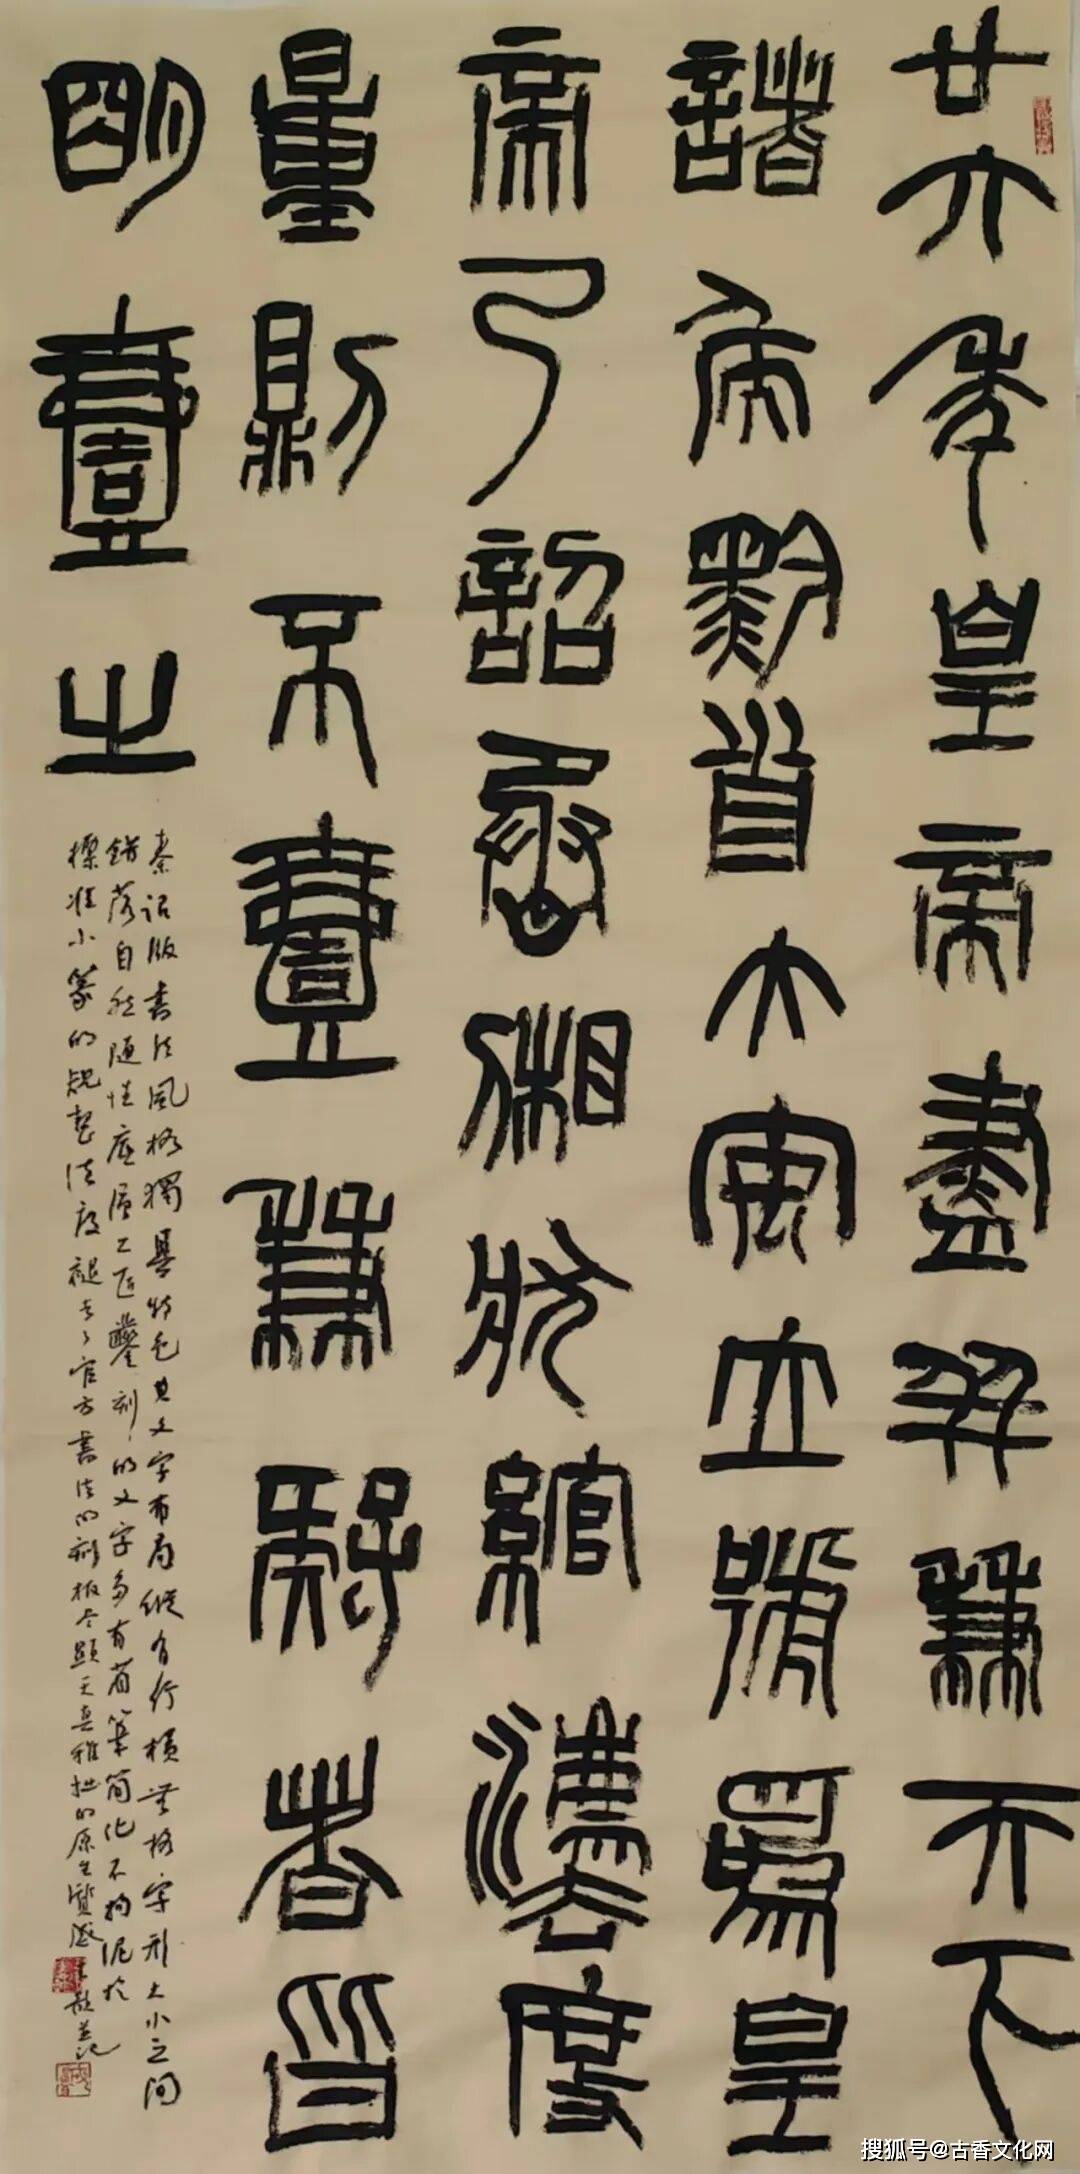 廿六年皇帝盡并兼天下
諸侯黔首大安立號爲皇
帝乃詔丞相狀綰灋度
量則不壹兼疑者皆
明壹之
秦诏版書法风格獨具特色其文字布局縱有行横无格字形大小之间
错落自然随性底层工匠鑿刻的文字多有省筆简化不拘泥於
標准小篆的规整法度褪去了官方書法的刻板尽顯天真稚拙的原生質感
搜狐号@古香文化网